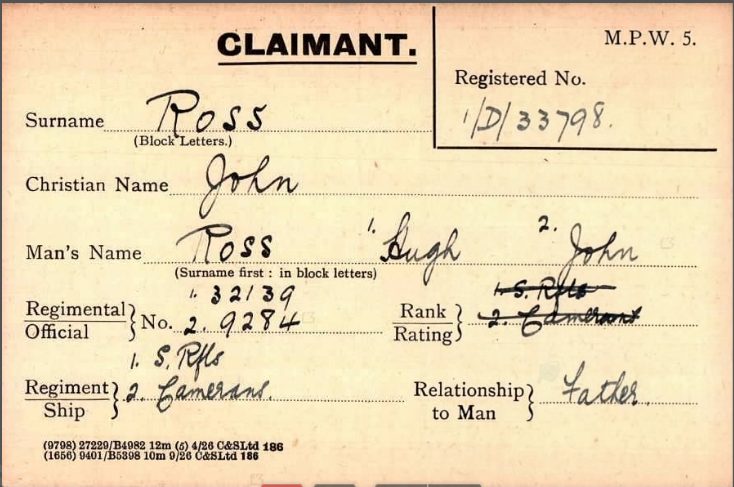 CLAIMANT.
M.P.W. 5.
Registered No.
1/D/33798.
Surname ROSS
(Block Letters.)
Christian Name John
Man's Name ROSS 1. Hugh 2. John
(Surname first : in block letters)
Regimental Official } No. 1. 32139 2. 9284
Rank Rating } 1. S. Rfls 2. Camerans
Regiment Ship } 1. S. Rfls 2. Camerans.
Relationship to Man } Father.
(9798) 27229/B4982 12m (5) 4/26 C&SLtd 186
(1656) 9401/B5398 10m 9/26 C&SLtd 186